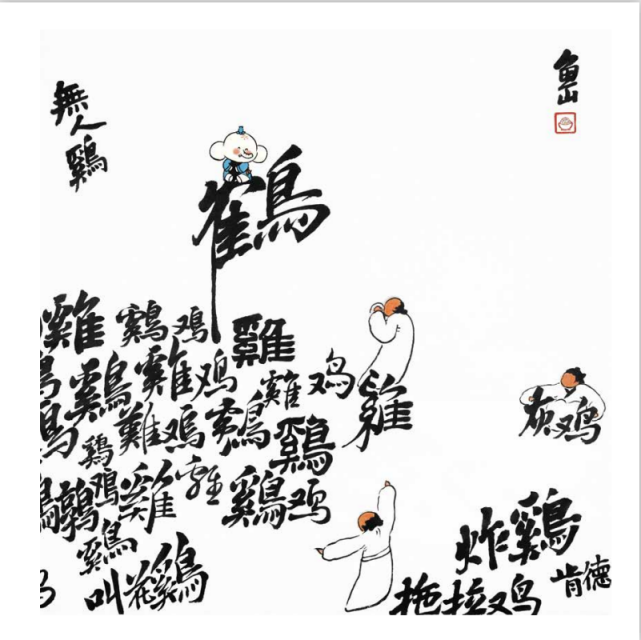 無人鷄
鱼山
鶴
雞 鷄 鸡 雞
鷄 雞 鸡 雞 鸡 雞
灰鸡
鷄 鷄
鷄 鸡 雞 鷄 鸡
鷄
炸鷄
肯德
叫花鷄
拖拉鸡